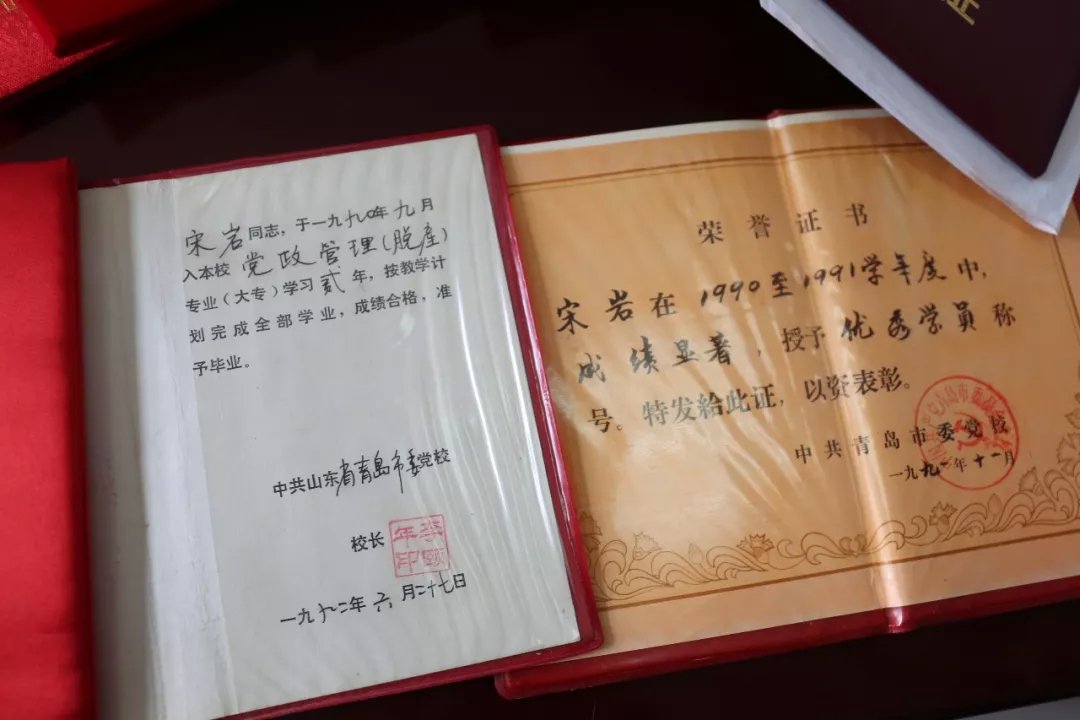 宋岩同志，于一九九〇年九月
入本校党政管理(脱产)
专业（大专）学习贰年，按教学计
划完成全部学业，成绩合格，准
予毕业。
中共山东省青岛市委党校
校长
一九九二年六月二十七日
荣誉证书
宋岩在1990至1991学年度中，
成绩显著，授予优秀学员称
号。特发给此证，以资表彰。
中共青岛市委党校
一九九一年十一月
证